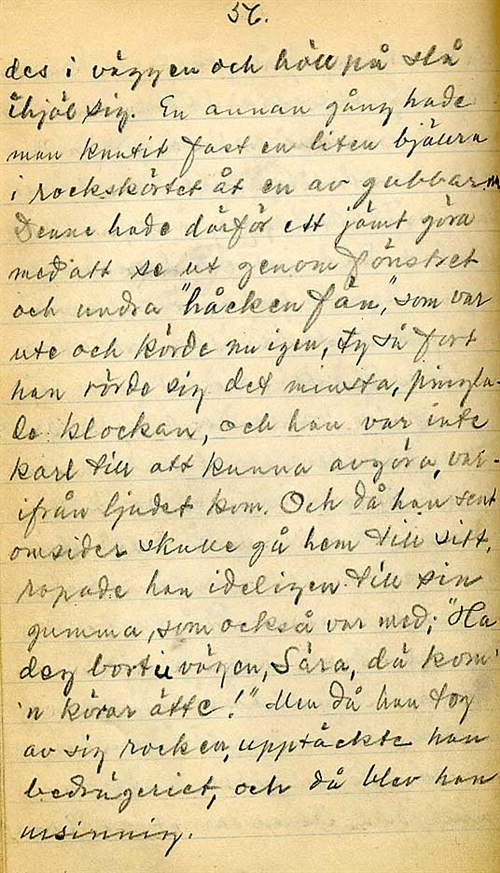 56.
des i väggen och höll på slå
ihjäl sig. En annan gång hade
man knutit fast en liten bjällra
i rockskörtet åt en av gubbarna.
Denne hade därför ett jämt göra
med att se ut genom fönstret
och undra "håcken fån," som var
ute och körde nu igen, ty så fort
han rörde sig det minsta, pingla-
de klockan, och han var inte
karl till att kunna avgöra, var-
ifrån ljudet kom. Och då han sent
omsider skulle gå hem till sitt,
ropade han ideligen till sin
gumma, som också var med; "Ha
dej bort u vägen, Sara, då kom'
'n körar åtte!" Men då han tog
av sig rocken, upptäckte han
bedrägeriet, och då blev han
ursinnig.